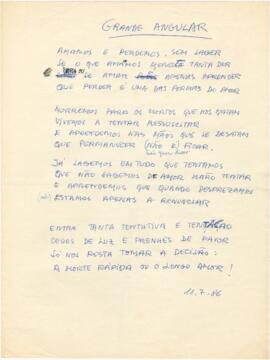 GRANDE ANGULAR
AMAMOS E PERDEMOS, SEM SABER
SE O QUE AMAMOS MERECE TANTA DOR
SE AMAR APENAS APRENDER
QUE PERDER É UMA DAS FORMAS DO AMOR
MORREMOS PARA OS MORTOS QUE NOS MATAM
VIVEMOS A TENTAR RESSUSCITAR
E APRENDEMOS NAS MÃOS QUE SE DESATAM
QUE PERMANECER (NÃO É) FICAR.
JÁ SABEMOS EM TUDO QUE TENTAMOS
QUE NÃO SABEMOS DE AMOR SENÃO TENTAR
E APRENDEMOS QUE QUANDO DESPREZAMOS
ESTAMOS APENAS A RENUNCIAR
ENTRE TANTA TENTATIVA E TENTAÇÃO
CEGOS DE LUZ E PRENHES DE PAVOR
SÓ NOS RESTA TOMAR A DECISÃO:
A MORTE RÁPIDA OU O LONGO AMOR!
11.7.86